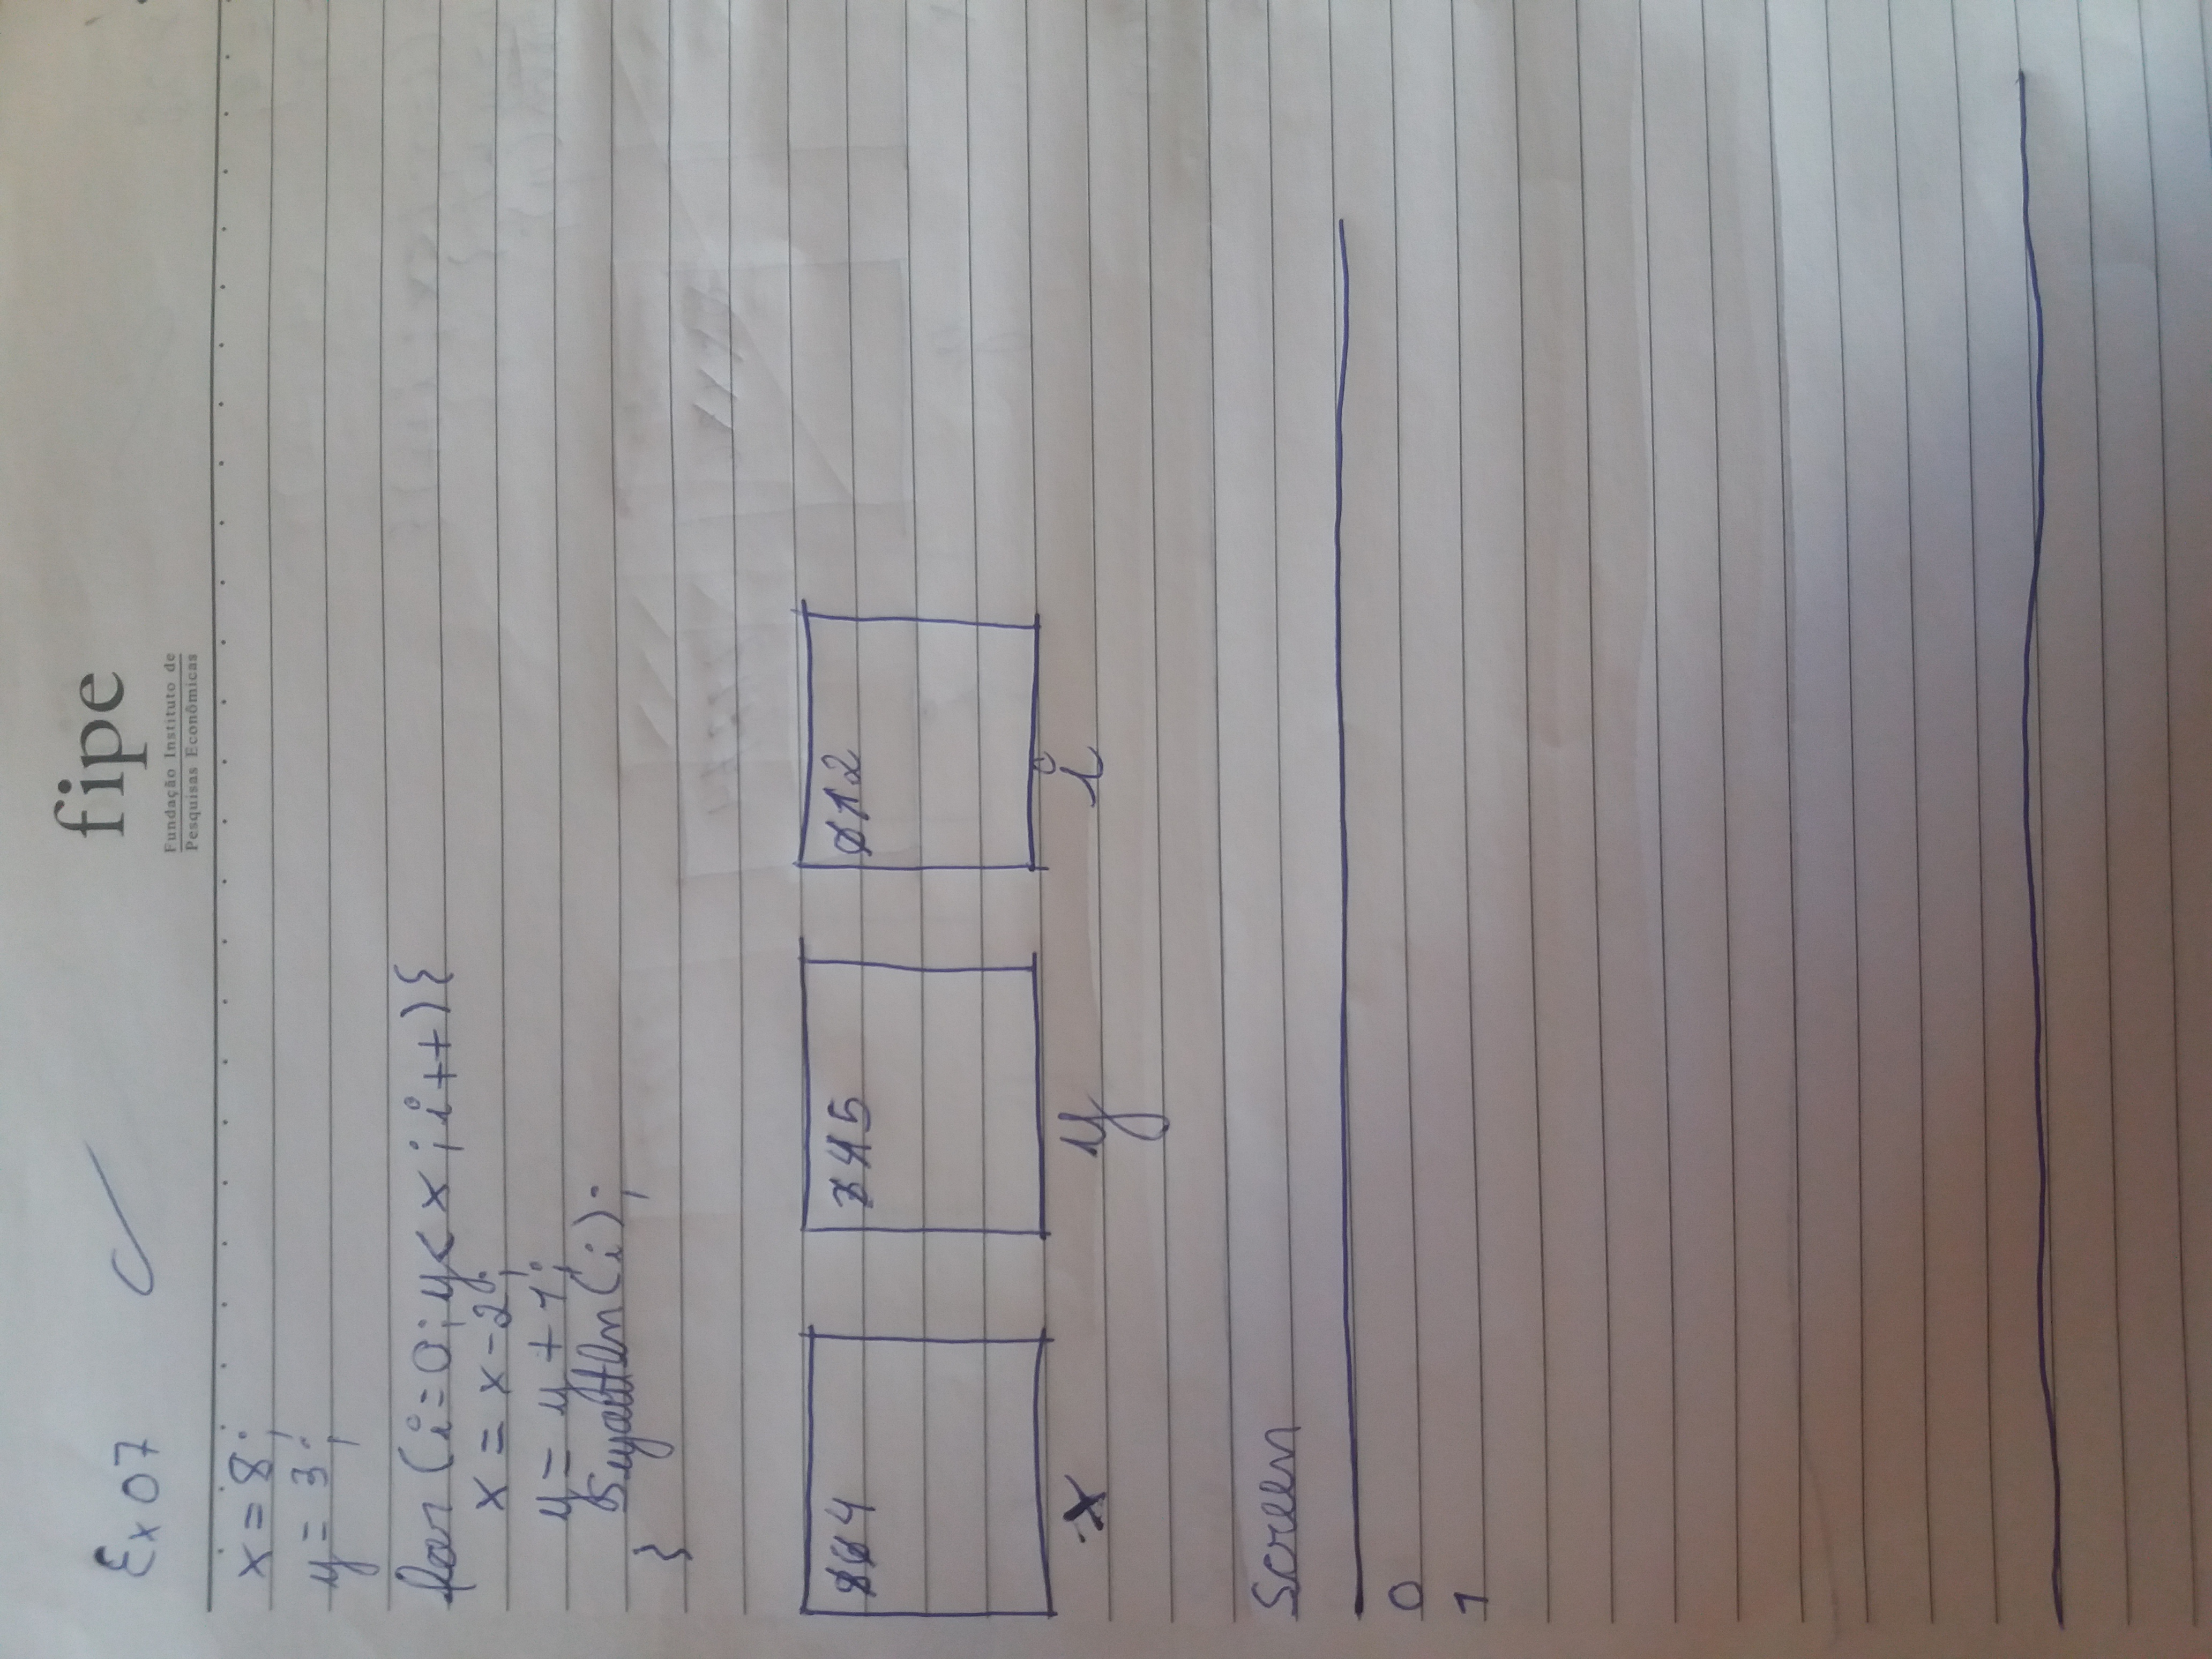 fipe
Fundação Instituto de
Pesquisas Econômicas
Ex 07
x = 8;
y = 3;
for (i=0; y< x; i++){
x = x-2;
y = y + 1;
Syoutln(i);
}
8 6 4
3 4 5
0 1 2
x
y
i
Screen
0
1